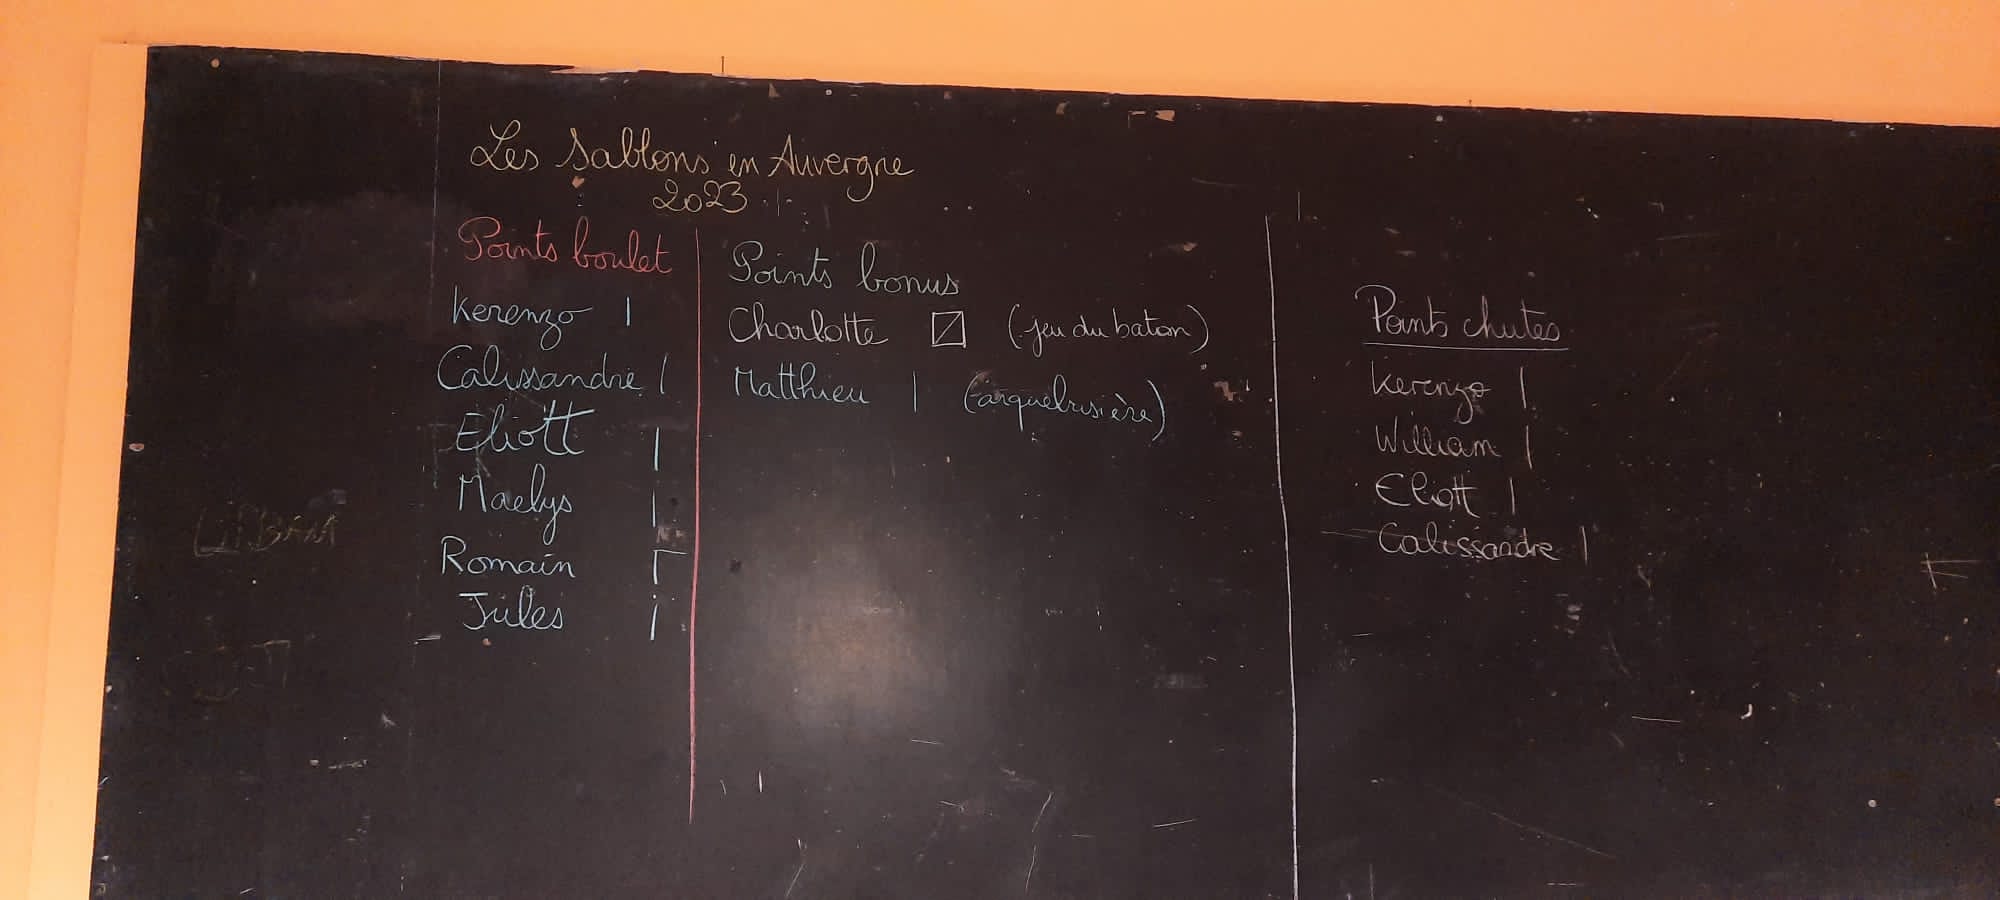 Les Sablons en Auvergne
2023
Points boulet
Kerenzo |
Calissandre |
Eliott |
Maelys |
Romain Γ
Jules |
Points bonus
Charlotte ⍁ (jeu du baton)
Matthieu | (arquebusière)
Points chutes
Kerenzo |
William |
Eliott |
Calissandre |